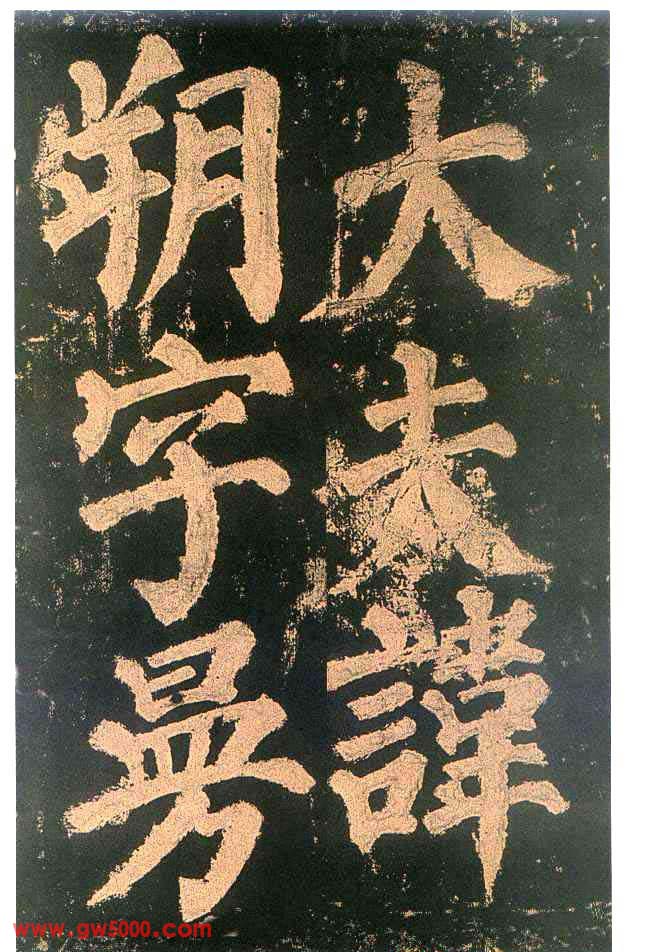 大夫諱
朔字曼
www.gw5000.com